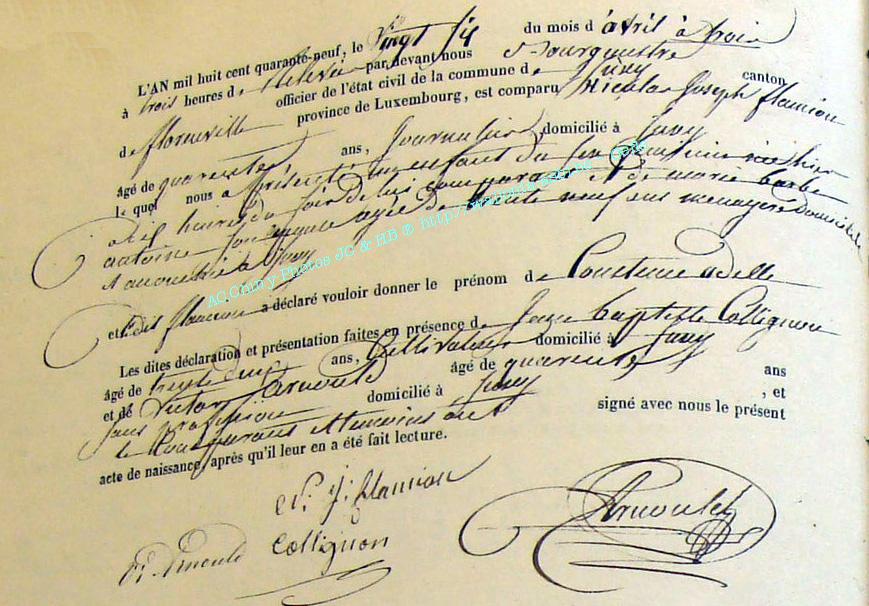 L'AN mil huit cent quarante-neuf, le Vingt six du mois d'avril à trois
à trois heures de relevée par devant nous Bourguestre
officier de l'état civil de la commune de Juzy canton
de florenville province de Luxembourg, est comparu Nicolas Joseph flamion
âgé de quarente ans, Journalier domicilié à Jusy
le quel nous a présenté un enfant du sex feminin née hier
a six heures du soir de lui comparant et de marie barbe
antoine son epouse agée de trente neuf ans menagère domiciliée
à Jusy
et le dis flamion a déclaré vouloir donner le prénom de Constence adelle
Les dites déclaration et présentation faites en présence de Jean baptiste Collignon
âgé de trente ans, Cultivateur domicilié à Jusy
et de Victor Arnould âgé de quarente ans
sans profession domicilié à Jusy , et
le Comparant et temoins ont signé avec nous le présent
acte de naissance, après qu'il leur en a été fait lecture.
N. J. flamion
Arnould
V. Arnould
Collignon
AC Chiny Photos JG & HB @ http://